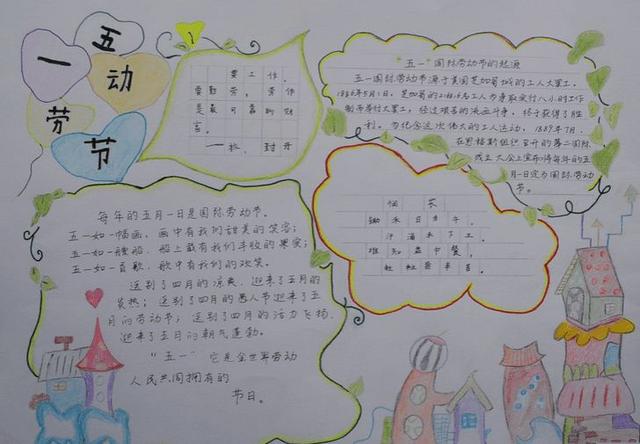 五一
劳动节
要工作,
要勤劳。劳作
是最可靠的财
富。
——拉·封丹
“五一”国际劳动节的起源
五一国际劳动节源于美国芝加哥城的工人大罢工。
1886年5月1日,芝加哥的21.6万名工人为争取实行八小时工作
制而举行大罢工,经过艰苦的流血斗争,终于获得了胜
利。为纪念这次伟大的工人运动,1889年7月,
在恩格斯组织召开的第二国际
成立大会上宣布将每年的五
月一日定为国际劳动
节。
悯农
锄禾日当午,
汗滴禾下土。
谁知盘中餐,
粒粒皆辛苦。
每年的五月一日是国际劳动节。
五一如一幅画,画中有我们甜美的笑容;
五一如一艘船,船上载有我们丰收的果实;
五一如一首歌,歌中有我们的欢笑。
送别了四月的凉爽,迎来了五月的
炎热;送别了四月的愚人节迎来了五
月的劳动节;送别了四月的活力飞扬,
迎来了五月的朝气蓬勃。
“五一” 它是全世界劳动
人民共同拥有的
节日。